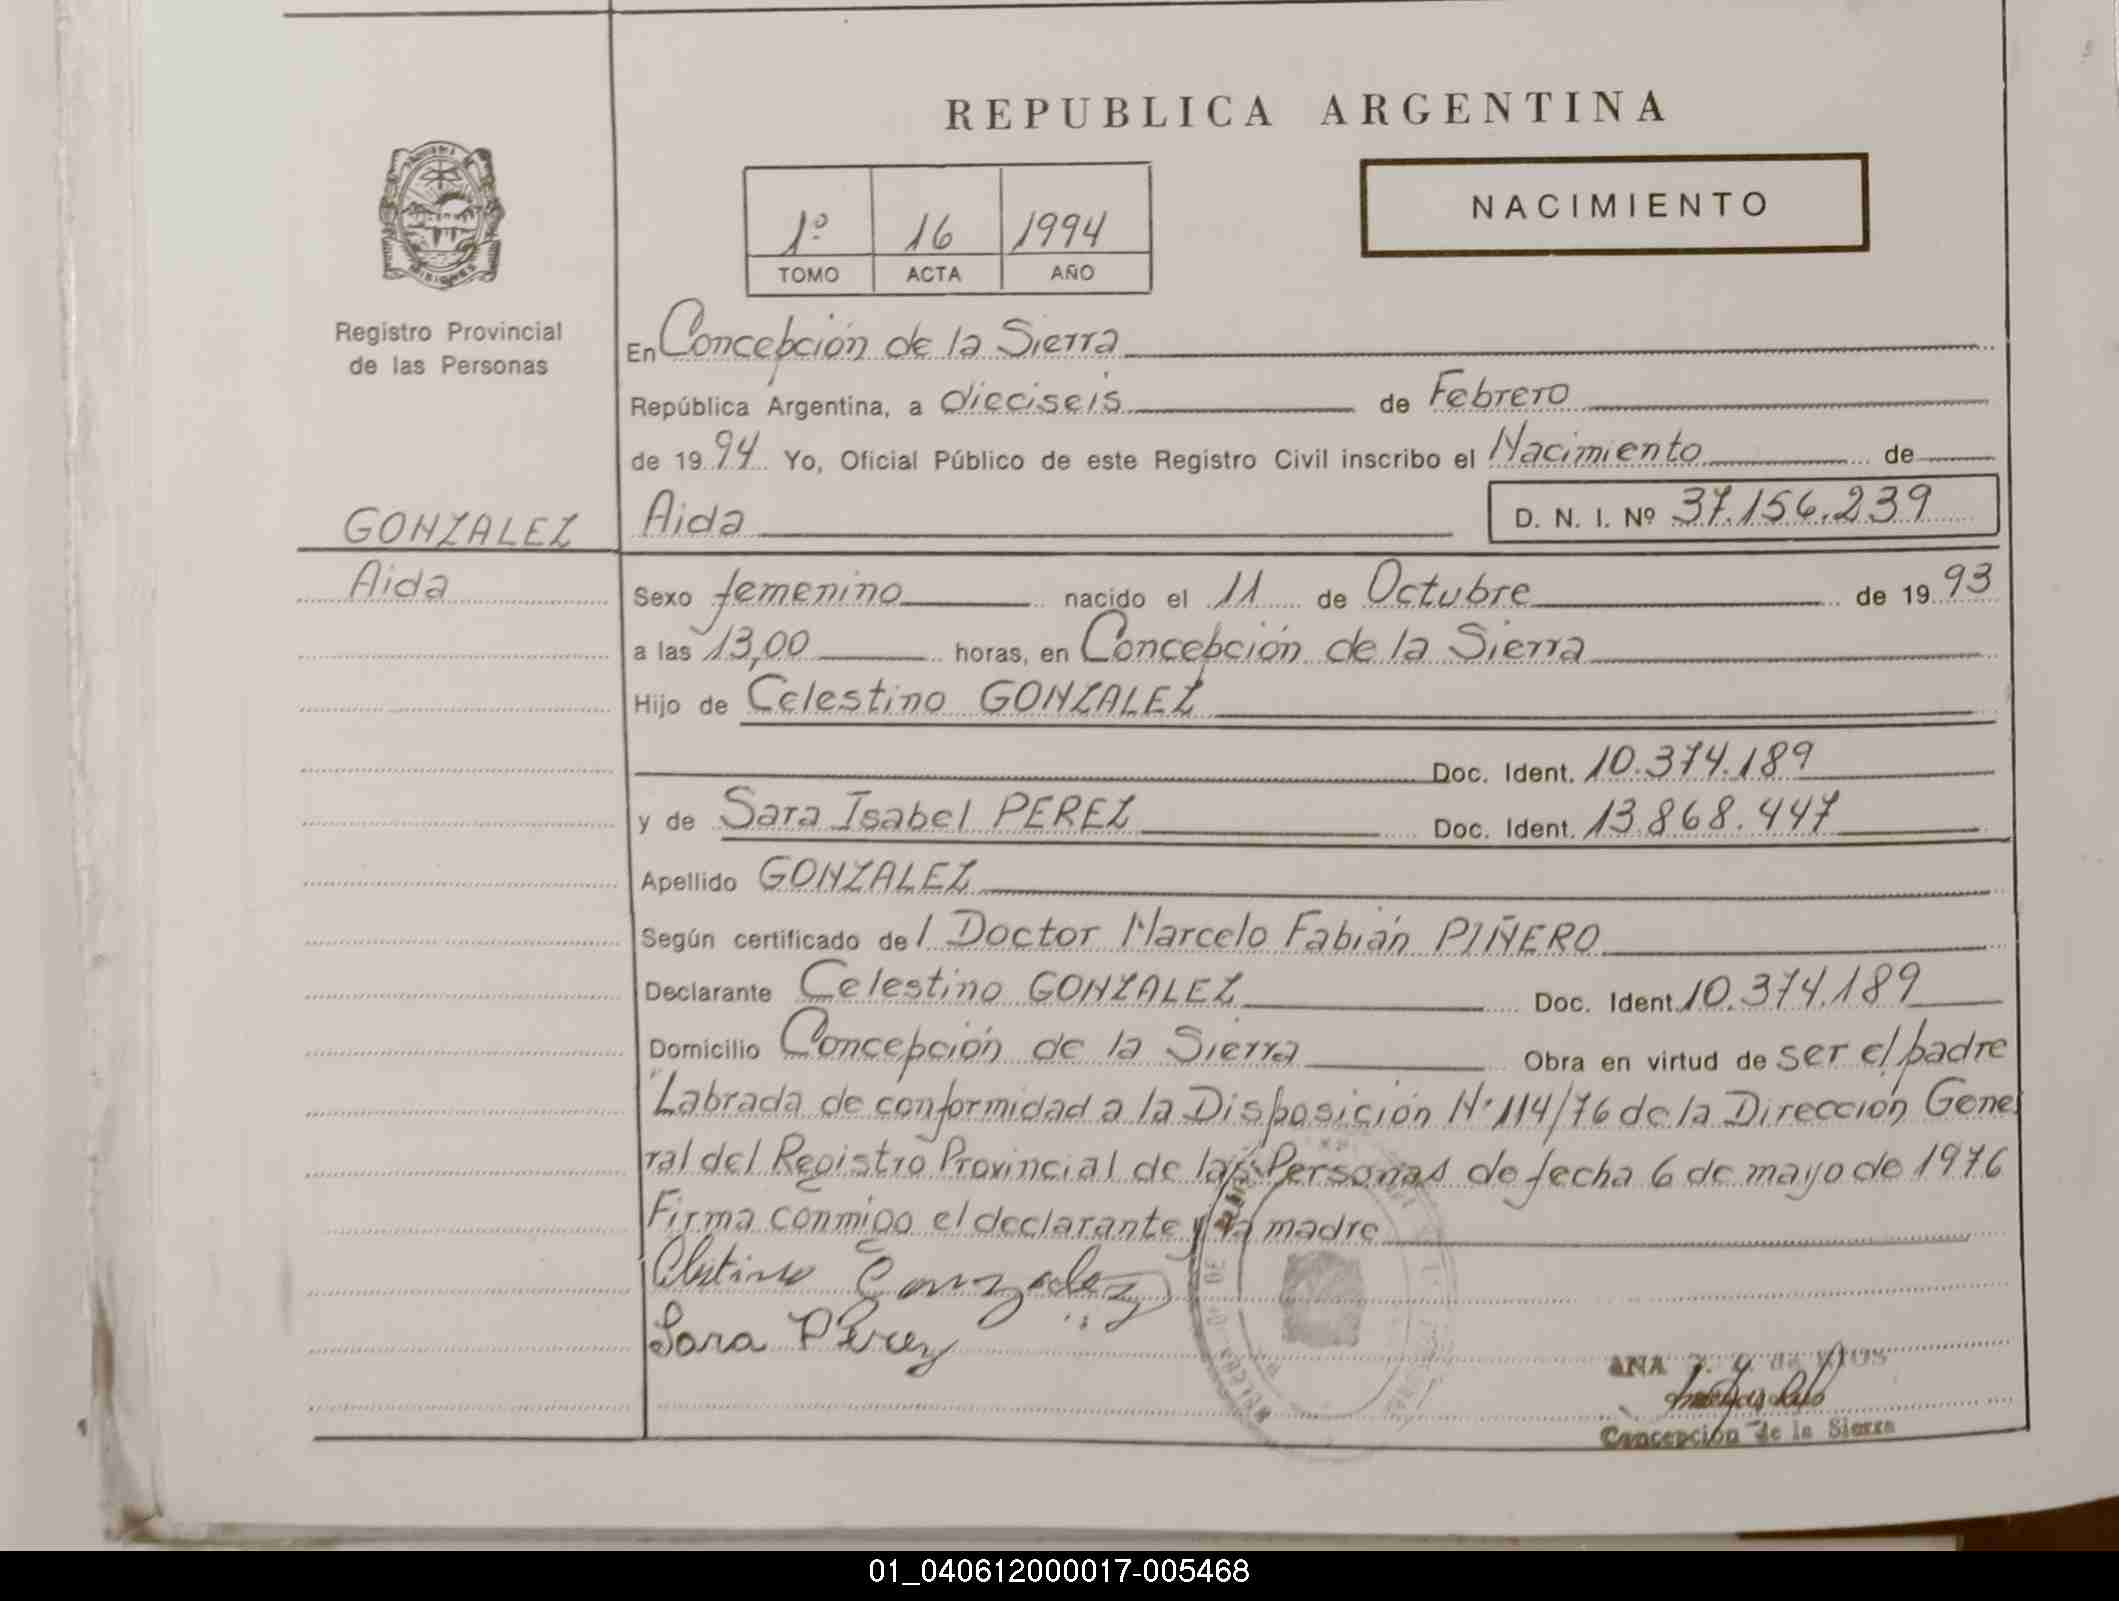 REPUBLICA ARGENTINA
NACIMIENTO
1º 16 1994
TOMO ACTA AÑO
Registro Provincial
de las Personas
En Concepción de la Sierra
República Argentina, a dieciseis de Febrero
de 1994 Yo, Oficial Público de este Registro Civil inscribo el Nacimiento de
GONZALEZ Aida D. N. I. Nº 37.156.239
Aida Sexo femenino nacido el 11 de Octubre de 1993
a las 13,00 horas, en Concepción de la Sierra
Hijo de Celestino GONZALEZ
Doc. Ident. 10.374.189
y de Sara Isabel PEREZ Doc. Ident. 13.868.447
Apellido GONZALEZ
Según certificado del Doctor Marcelo Fabián PIÑERO
Declarante Celestino GONZALEZ Doc. Ident. 10.374.189
Domicilio Concepción de la Sierra Obra en virtud de ser el padre
"Labrada de conformidad a la Disposición Nº 114/76 de la Dirección Gene
ral del Registro Provincial de las Personas de fecha 6 de mayo de 1976
Firma conmigo el declarante y la madre
Celestino Gonzalez
Sara Pérez
ANA
Concepción de la Sierra
01_040612000017-005468